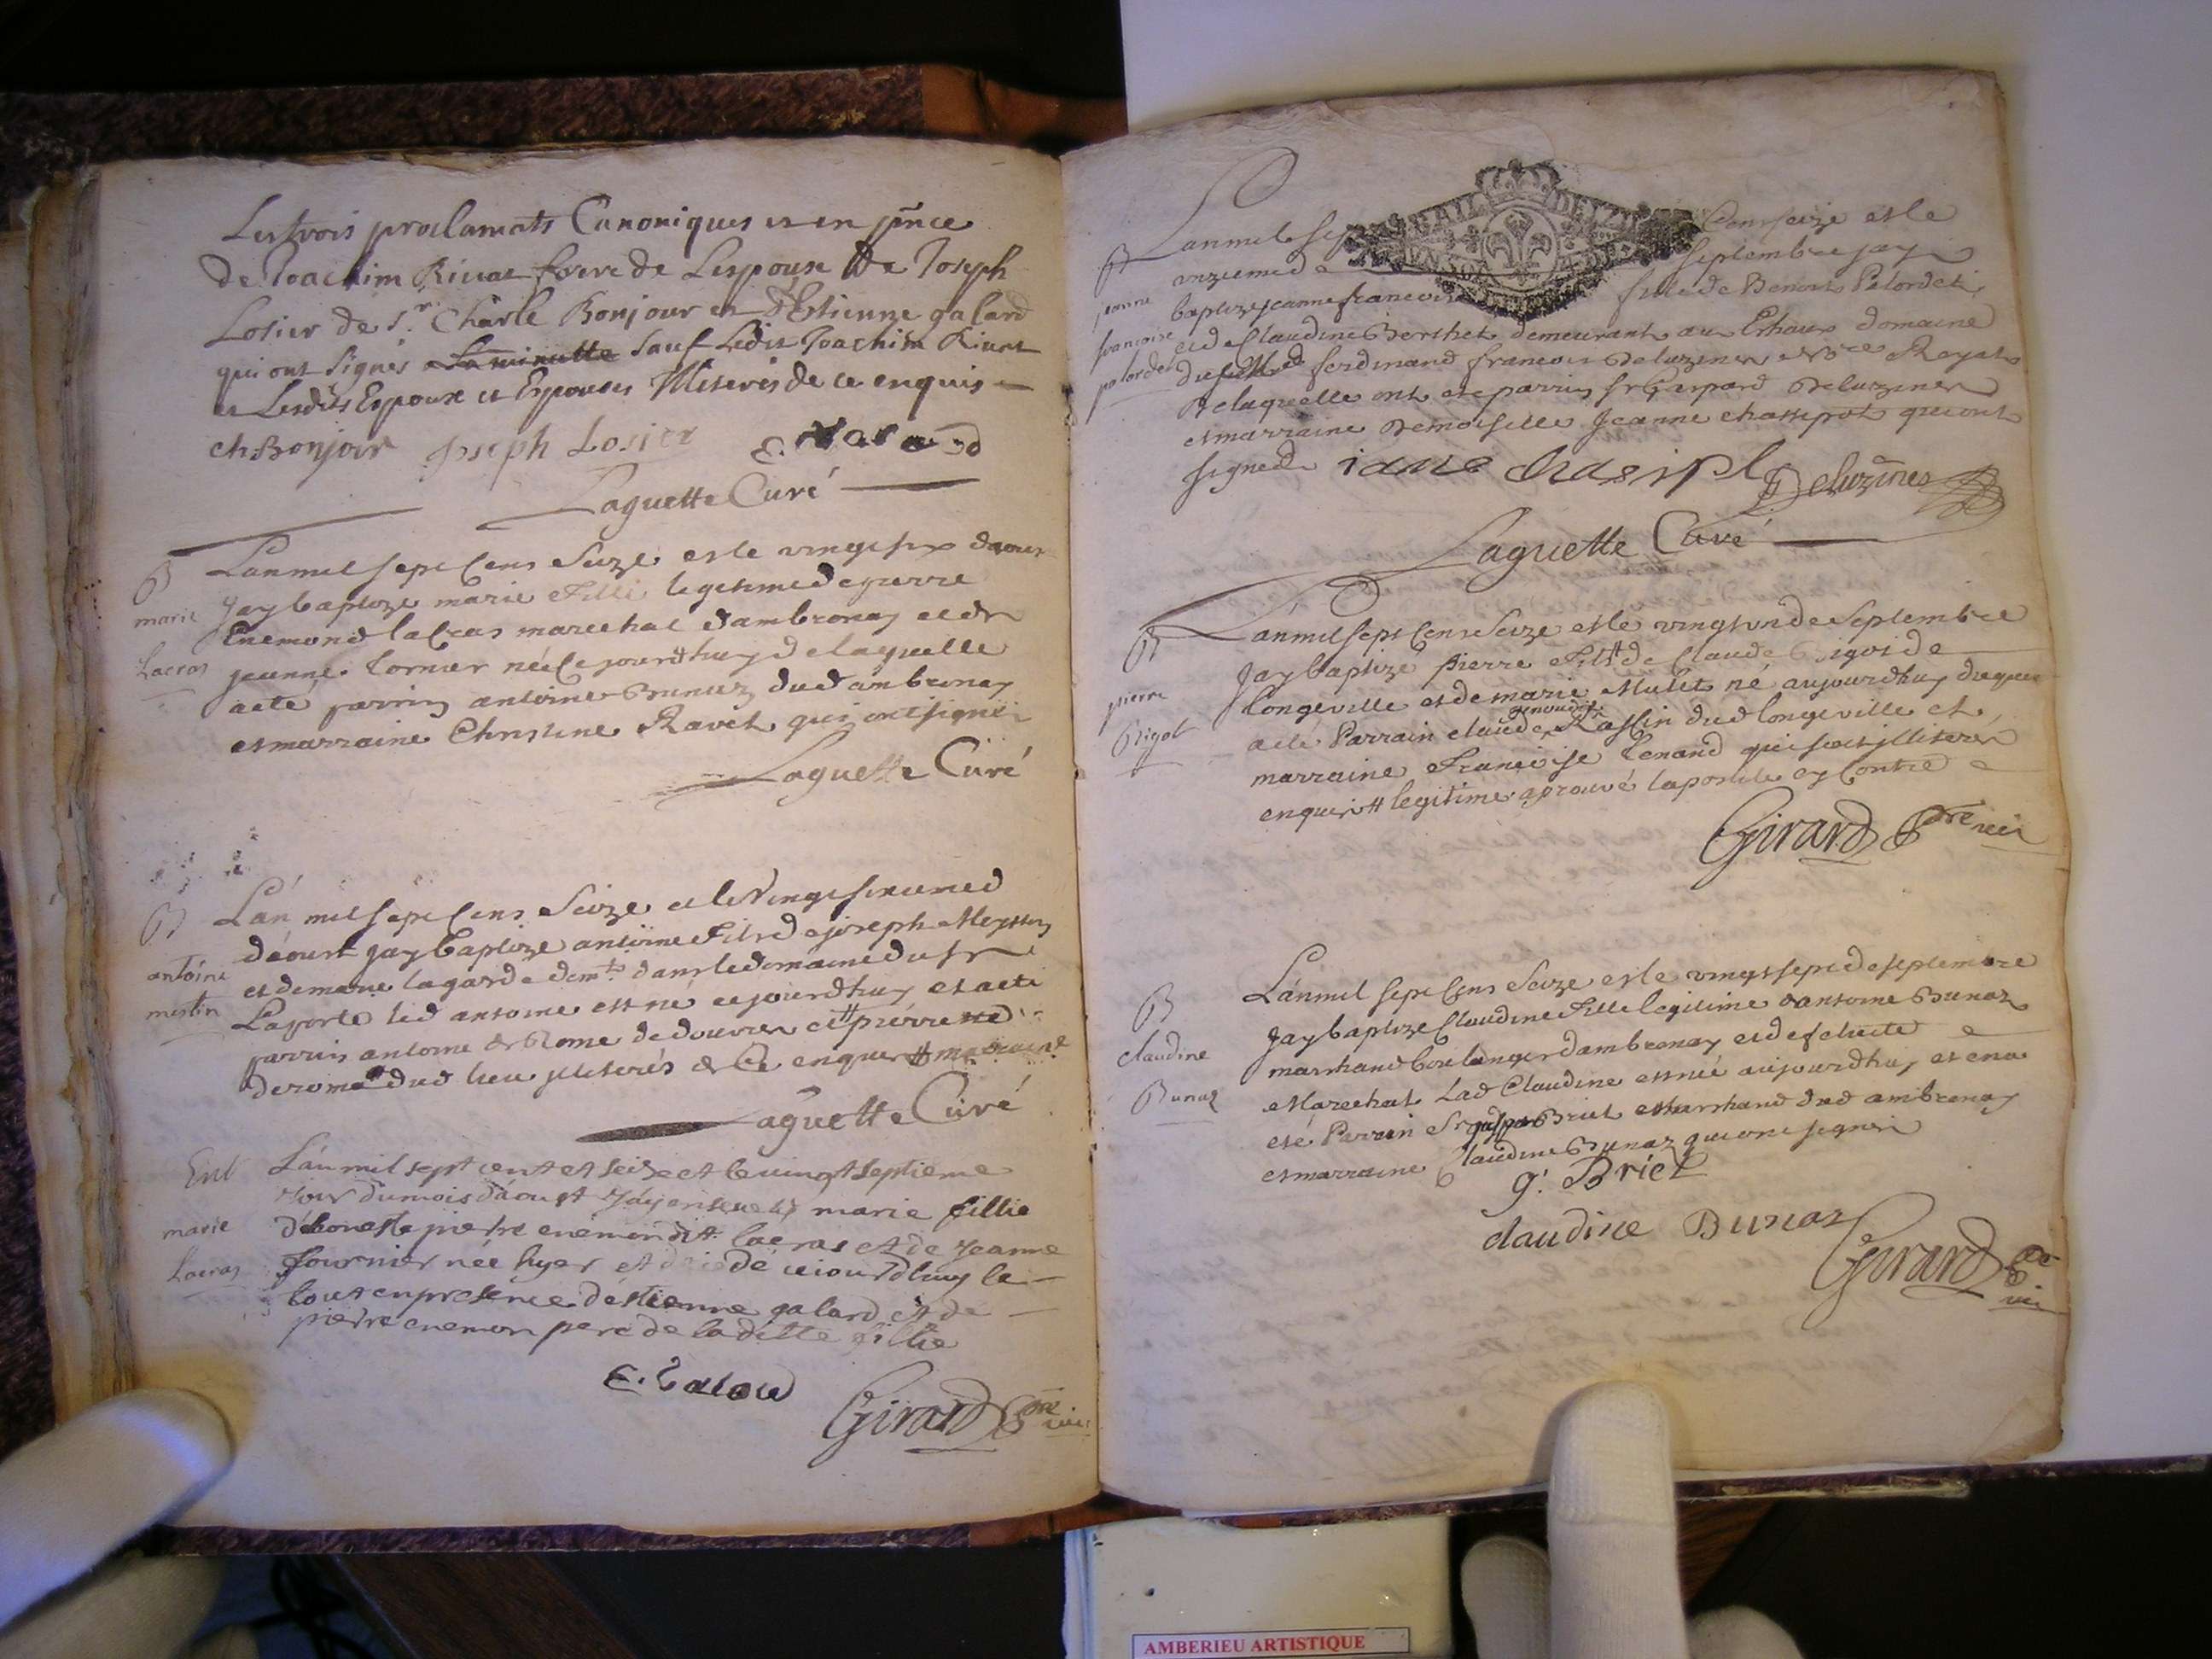 Les trois proclamats Canoniques et en pñce
de Joachim Rivat frere de Lespouse de Joseph
Losier de Sr. Charle Bonjour et d'Etienne galard
qui ont signes sauf Ledit Joachim Rivat
et Lesdits Espoux et Espouses Illiterés de ce enquis
ch Bonjour Joseph Losier
Laguette Curé
B
marie
Lacras
Lanmil sept Cens Seize et le vingt six daoust
Jay baptize marie Fille legitime de pierre
Enemond lacras marechal dambronay et de
jeanne fornier née Cejourdhuy de laquelle
a eté parrin antoine Bunuz dud ambronay
et marraine Christine Ravet qui ont signé
Laguette Curé
B
antoine
Lán mil sept Cens Seize et le Vingt sixieme
dáoust jay baptize antoine Fils de joseph Meystin
et de marie lagarde demts dans le domaine du sr
Laporte led antoine est né cejourdhuy et a eté
parrin antoine de Rome de douvres et # pierrette
derome dud lieu jlliterés de Ce enquis # marraine
Laguette Curé
Ent
marie
Lacras
Lán mil sept cent et seize et le vingt septieme
Jour du mois dáoust Jáy enseueli marie fillie
d'honeste pierre enemon dit lacras et de Jeanne
fournier née hyer et decedé ceiourdhuy le
tout en presence déstienne galard et de
pierre enemon pere de laditte fillie
Girard ptre vic
B
janne
francoise
Lanmil sept Cens seize et le
unzieme de septembre jay
baptize jeanne francoise fille de Benoist Pelordet
et de Claudine Berthet demeurant au Domaine
ferdinand francois Deluzines Royal
De laquelle ont eté parrin sr Gaspard Deluzines
et marraine Demoiselle Jeanne chassepot qui ont
signé
Deluzines
Laguette Curé
B
pierre
Rigot
Lánmil sept Cens Seize et le vingt un de Septembre
Jay baptizé pierre Fils # de Claude Rigot de
Longeville et de marie Mulet né aujourdhuy duquel
a eté Parrain claude Rassin dud longeville et
marraine Francoise Tenand qui sont jlliteres
enquis # legitime aprouvé lapostile cy Contre
Girard Ptre vic
B
claudine
Bunaz
Lánmil sept Cens Seize et le vingt sept de septembre
Jay baptize Claudine Fille legitime dantoine Bunaz
marchand boulanger dambronay et de felicite
Marechal Lad Claudine est née aujourdhuy et en a
eté Parrain Sr gaspar Briet Marchand dud ambronay
et marraine Claudine Bunaz qui ont signés
g. Briet
claudine Bunaz
Girard Ptre
vic
AMBERIEU ARTISTIQUE